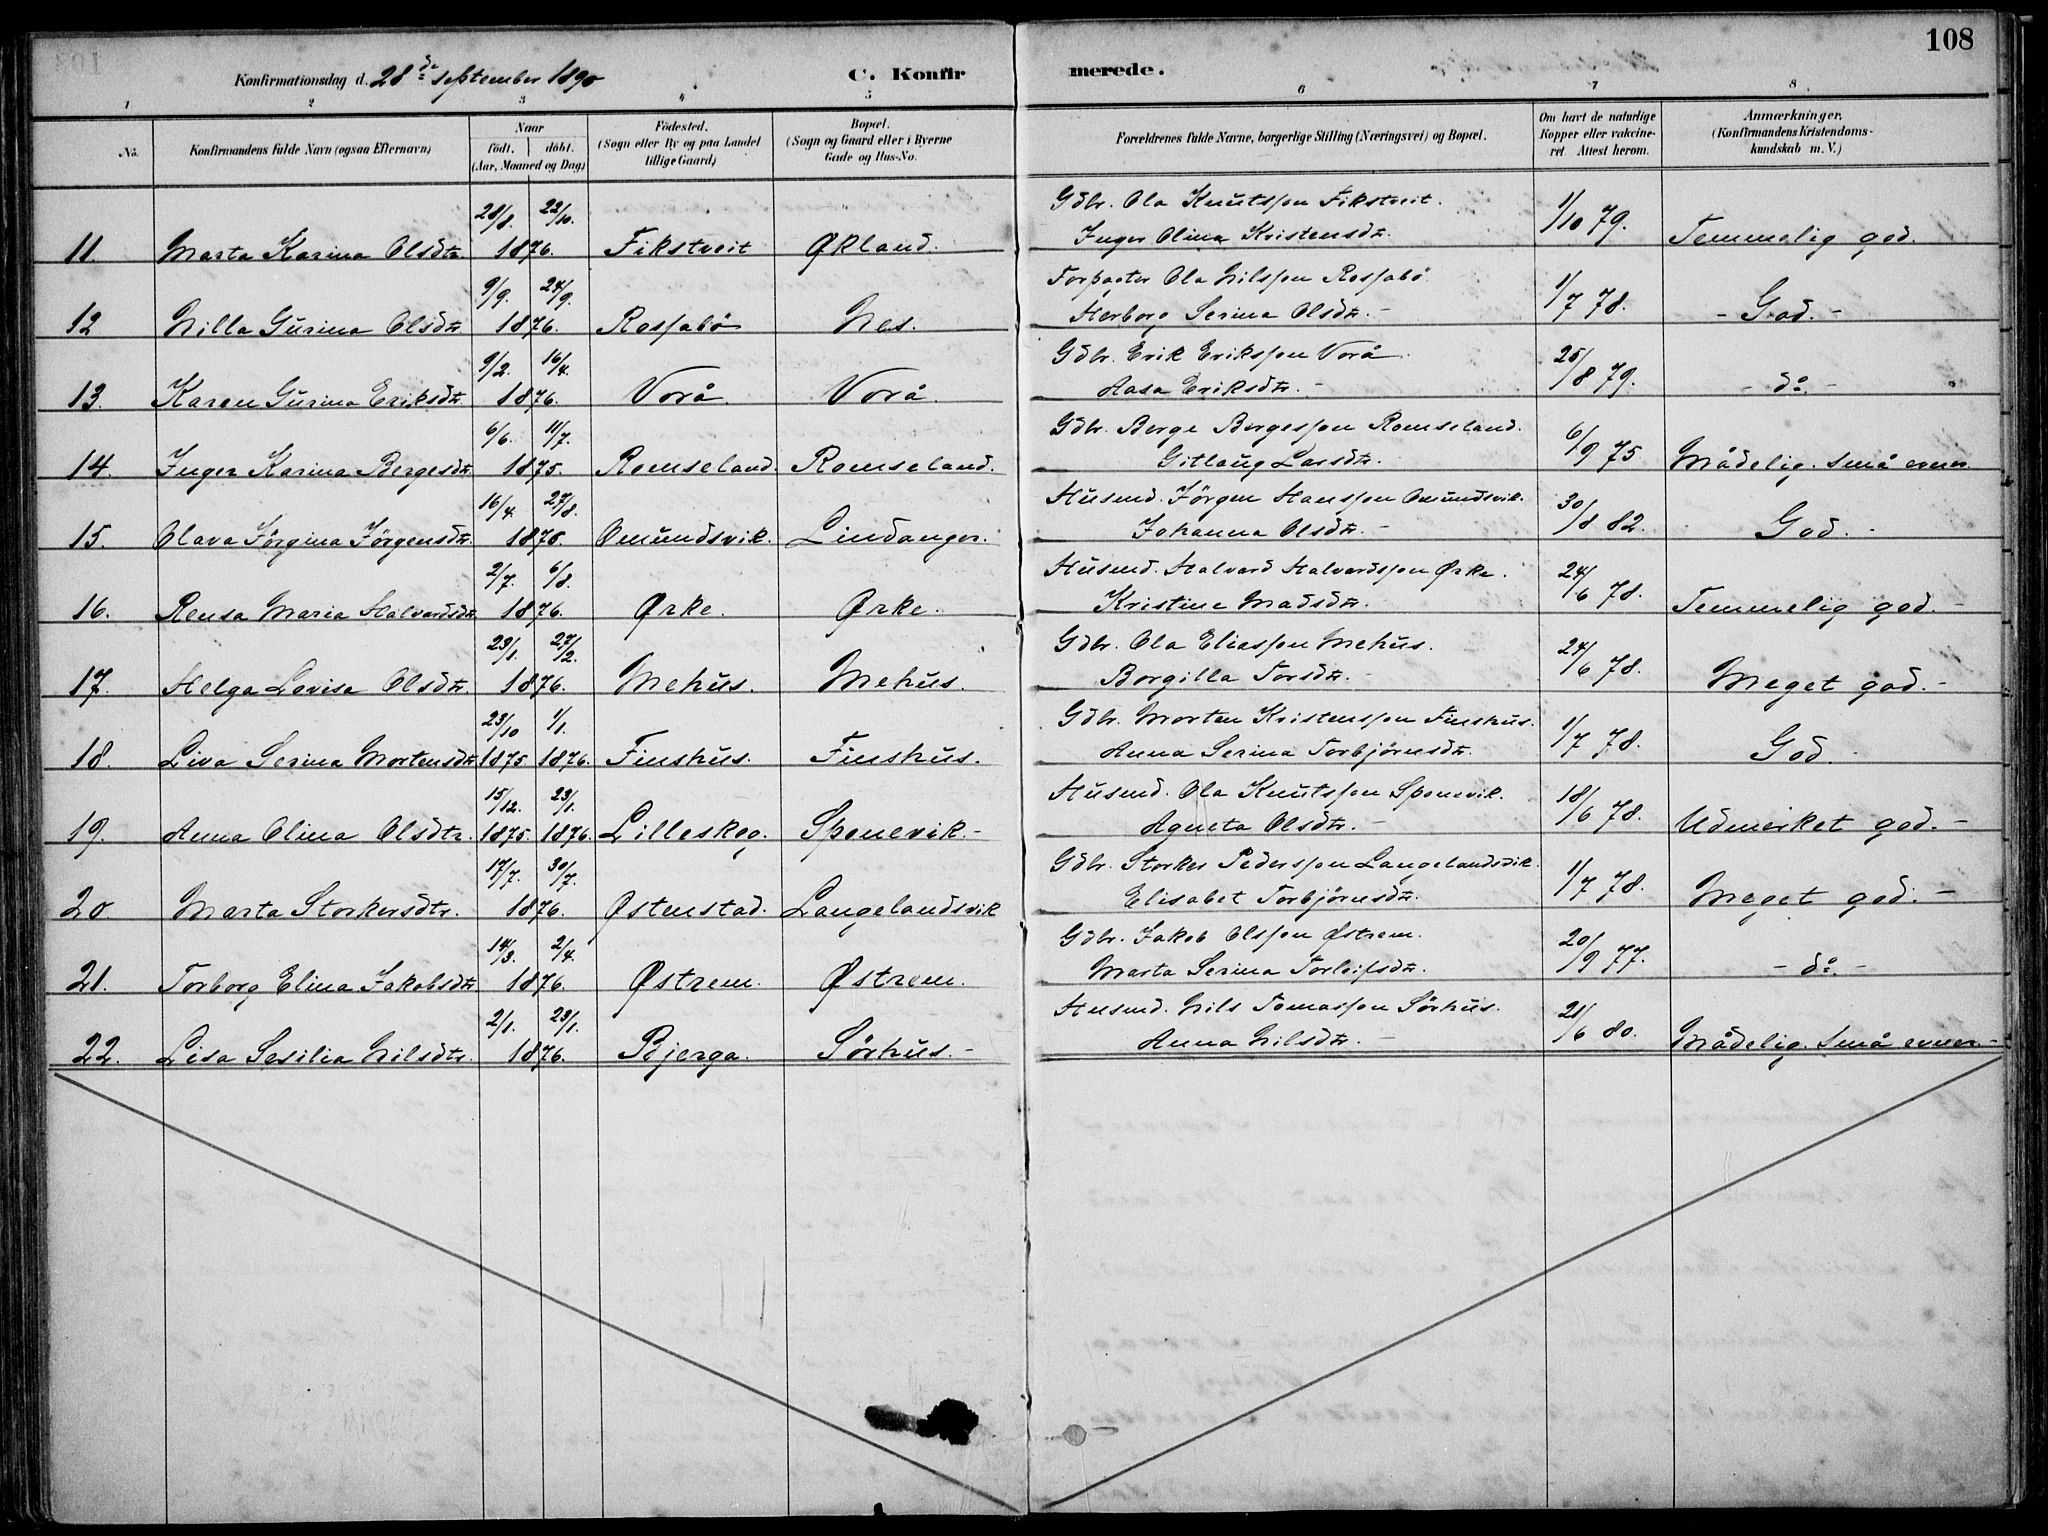 108
Konfirmationsdag d. 28de september 1890
C. Konfirmerede.
1 2 3 4 5 6 7 8
No. Konfirmandens fulde Navn (ogsaa Efternavn) Naar født. døbt. (Aar, Maaned og Dag) Fødested. (Sogn eller By og paa Landet tillige Gaard) Bopæl. (Sogn og Gaard eller i Byerne Gade og Hus-No. Forældrenes fulde Navne, borgerlige Stilling (Næringsvei) og Bopæl. Om havt de naturlige Kopper eller vakcineret. Attest herom. Anmærkninger. (Konfirmandens Kristendomskundskab m. V.)
28/8. 22/10. Gdbr. Ola Knutsson Fikstveit.
11. Marta Karina Olsdtr. 1876. Fikstveit Økland. Inger Olina Kristensdtr. 1/10 79. Temmelig god.
9/9. 24/9. Forpagter Ola Nilsson Rossabø
12 Nilla Gurina Olsdtr 1876. Rossabø Nes. Herborg Serina Olsdtr. - 1/7 78. - God. -
9/2. 16/4. Gdbr. Erik Eriksson Vorå.
13. Karen Gurina Eriksdtr 1876. Vorå. Vorå. Aasa Eriksdtr. - 25/8 79. - do. -
6/6. 11/7. Gdbr. Berge Bergesson Romseland.
14. Inger Karina Bergesdtr 1875. Romseland. Romseland. Gitlaug Larsdtr. - 6/9 75 Mådelig. små evner
16/4. 27/8. Husmd. Jörgen Hansson Omundsvik.
15. Olava Jörgina Jörgensdtr. 1876. Omundsvik. Lindanger. Johanna Olsdtr. - 30/8 82. God. -
2/7. 6/8. Husmd. Halvard Halvardsson Ørke.
16. Rensa Maria Halvardsdtr 1876. Ørke. Ørke. Kristine Madsdtr. 24/6 78. Temmelig god. -
23/1. 27/2. Gdbr. Ola Eliasson Mehus.
17. Helga Lovisa Olsdtr 1876. Mehus. Mehus. Borgilla Torsdtr. - 24/6 78. Meget god. -
23/10 1/1. Gdbr. Morten Kristensson Finshus.
18. Liva Serina Mortensdtr 1875 1876. Finshus. Finshus. Anna Serina Torbjørnsdtr. 1/7 78. God. -
15/12. 23/1. Husmd. Ola Knutsson Sponevik.
19. Anna Olina Olsdtr. 1875. 1876. Lilleskog. Sponevik. - Agneta Olsdtr. - 18/6 78. Udmerket god. -
17/7. 30/7. Gdbr. Storker Pedersson Langelandsvik.
20 Marta Storkersdtr. 1876. Østenstad. Langelandsvik Elisabet Torbjørnsdtr. 1/7 78. Meget god. -
14/3. 2/4. Gdbr. Jakob Olsson Østrem.
21. Torborg Elina Jakobsdtr 1876. Østrem. Østrem. Marta Serina Torleifsdtr. 20/9 77. - do. -
2/1. 23/1. Husmd. Nils Tomasson Sørhus.
22. Lisa Sesilia Nilsdtr. 1876. Bjerga. Sørhus. - Anna Nilsdtr. - 21/6 80. Mådelig. små evner. -